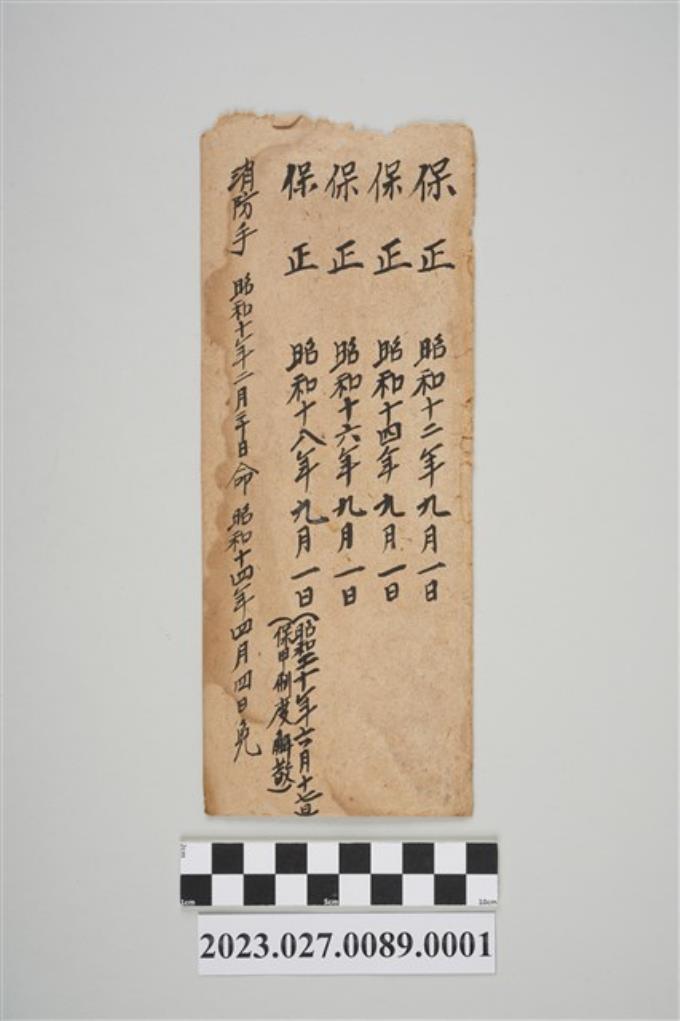 保正 昭和十二年九月一日
保正 昭和十四年九月一日
保正 昭和十六年九月一日
保正 昭和十八年九月一日
(昭和二十年六月十七日
保甲制度解散)
消防手 昭和十年二月二十日命 昭和十四年四月四日免
2cm
1cm
5cm
10cm
2023.027.0089.0001